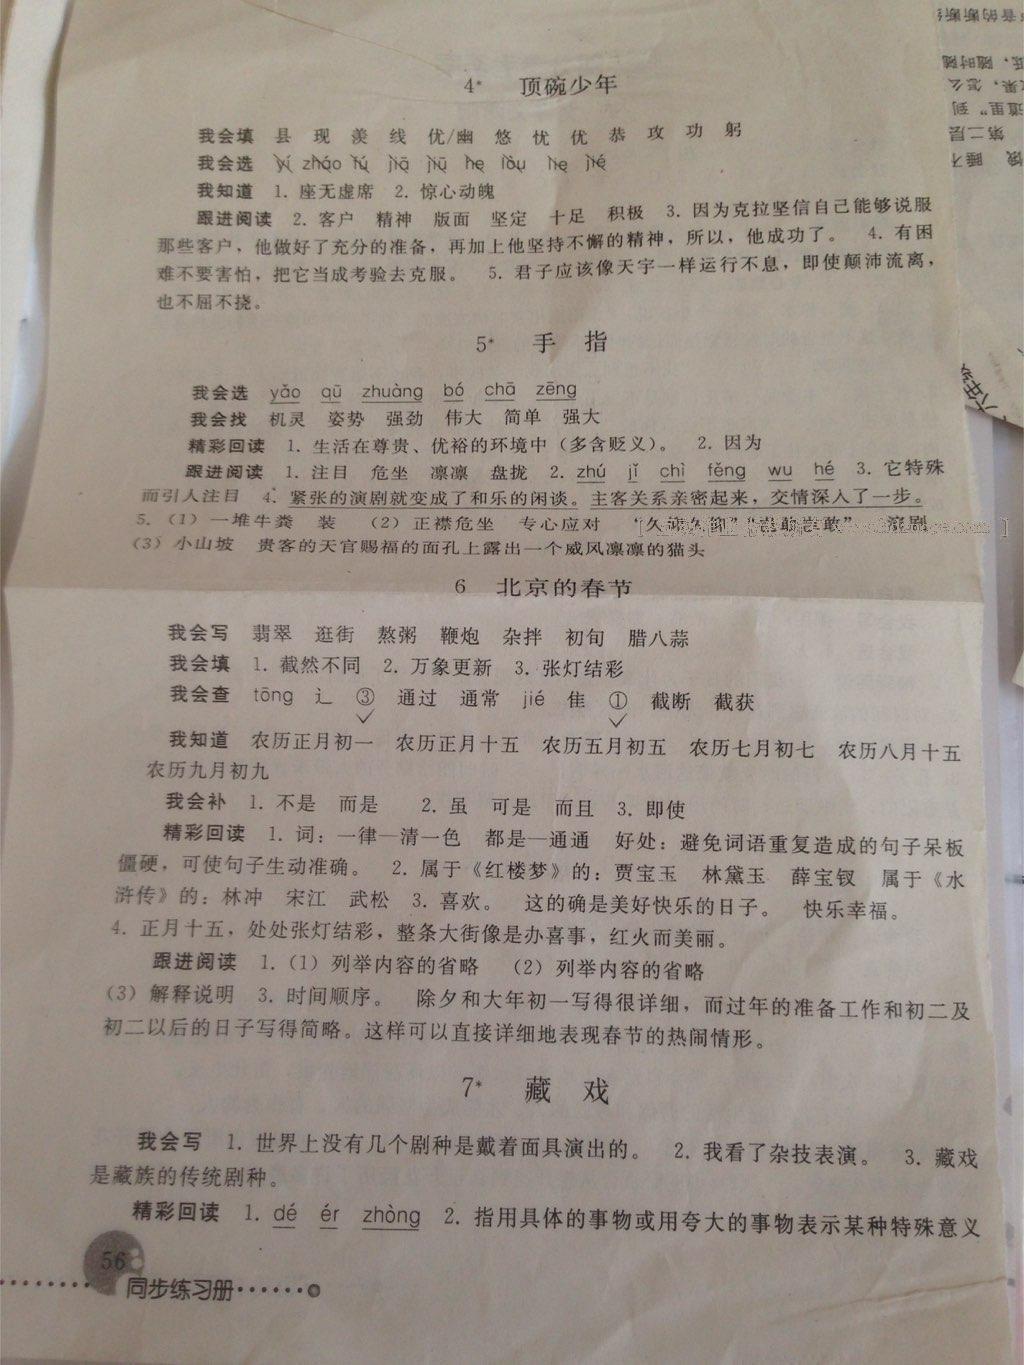 4* 顶碗少年
我会填 县 现 羡 线 优/幽 悠 忧 优 恭 攻 功 躬
我会选 yí zhǎo fú jiā jiū he lòu lie jié
我知道 1. 座无虚席 2. 惊心动魄
跟进阅读 2. 客户 精神 版面 坚定 十足 积极 3. 因为克拉坚信自己能够说服
那些客户，他做好了充分的准备，再加上他坚持不懈的精神，所以，他成功了。 4. 有困
难不要害怕，把它当成考验去克服。 5. 君子应该像天宇一样运行不息，即使颠沛流离，
也不屈不挠。
5* 手 指
我会选 yǎo qū zhuàng bó chā zēng
我会找 机灵 姿势 强劲 伟大 简单 强大
精彩回读 1. 生活在尊贵、优裕的环境中（多含贬义）。 2. 因为
跟进阅读 1. 注目 危坐 凛凛 盘拢 2. zhú jǐ chì fěng wu hé 3. 它特殊
而引人注目 4. 紧张的演剧就变成了和乐的闲谈。主客关系亲密起来，交情深入了一步。
5.（1）一堆牛粪 装 （2）正襟危坐 专心应对 “久仰久仰”“岂敢岂敢” 演剧
（3）小山坡 贵客的天官赐福的面孔上露出一个威风凛凛的猫头
6 北京的春节
我会写 翡翠 逛街 熬粥 鞭炮 杂拌 初旬 腊八蒜
我会填 1. 截然不同 2. 万象更新 3. 张灯结彩
我会查 tōng 辶 ③ 通过 通常 jié 隹 ① 截断 截获
我知道 农历正月初一 农历正月十五 农历五月初五 农历七月初七 农历八月十五
农历九月初九
我会补 1. 不是 而是 2. 虽 可是 而且 3. 即使
精彩回读 1. 词：一律—清一色 都是—通通 好处：避免词语重复造成的句子呆板
僵硬，可使句子生动准确。 2. 属于《红楼梦》的：贾宝玉 林黛玉 薛宝钗 属于《水
浒传》的：林冲 宋江 武松 3. 喜欢。 这的确是美好快乐的日子。 快乐幸福。
4. 正月十五，处处张灯结彩，整条大街像是办喜事，红火而美丽。
跟进阅读 1.（1）列举内容的省略 （2）列举内容的省略
（3）解释说明 3. 时间顺序。 除夕和大年初一写得很详细，而过年的准备工作和初二及
初二以后的日子写得简略。这样可以直接详细地表现春节的热闹情形。
7* 藏 戏
我会写 1. 世界上没有几个剧种是戴着面具演出的。 2. 我看了杂技表演。 3. 藏戏
是藏族的传统剧种。
精彩回读 1. dé ér zhòng 2. 指用具体的事物或用夸大的事物表示某种特殊意义
56
同步练习册